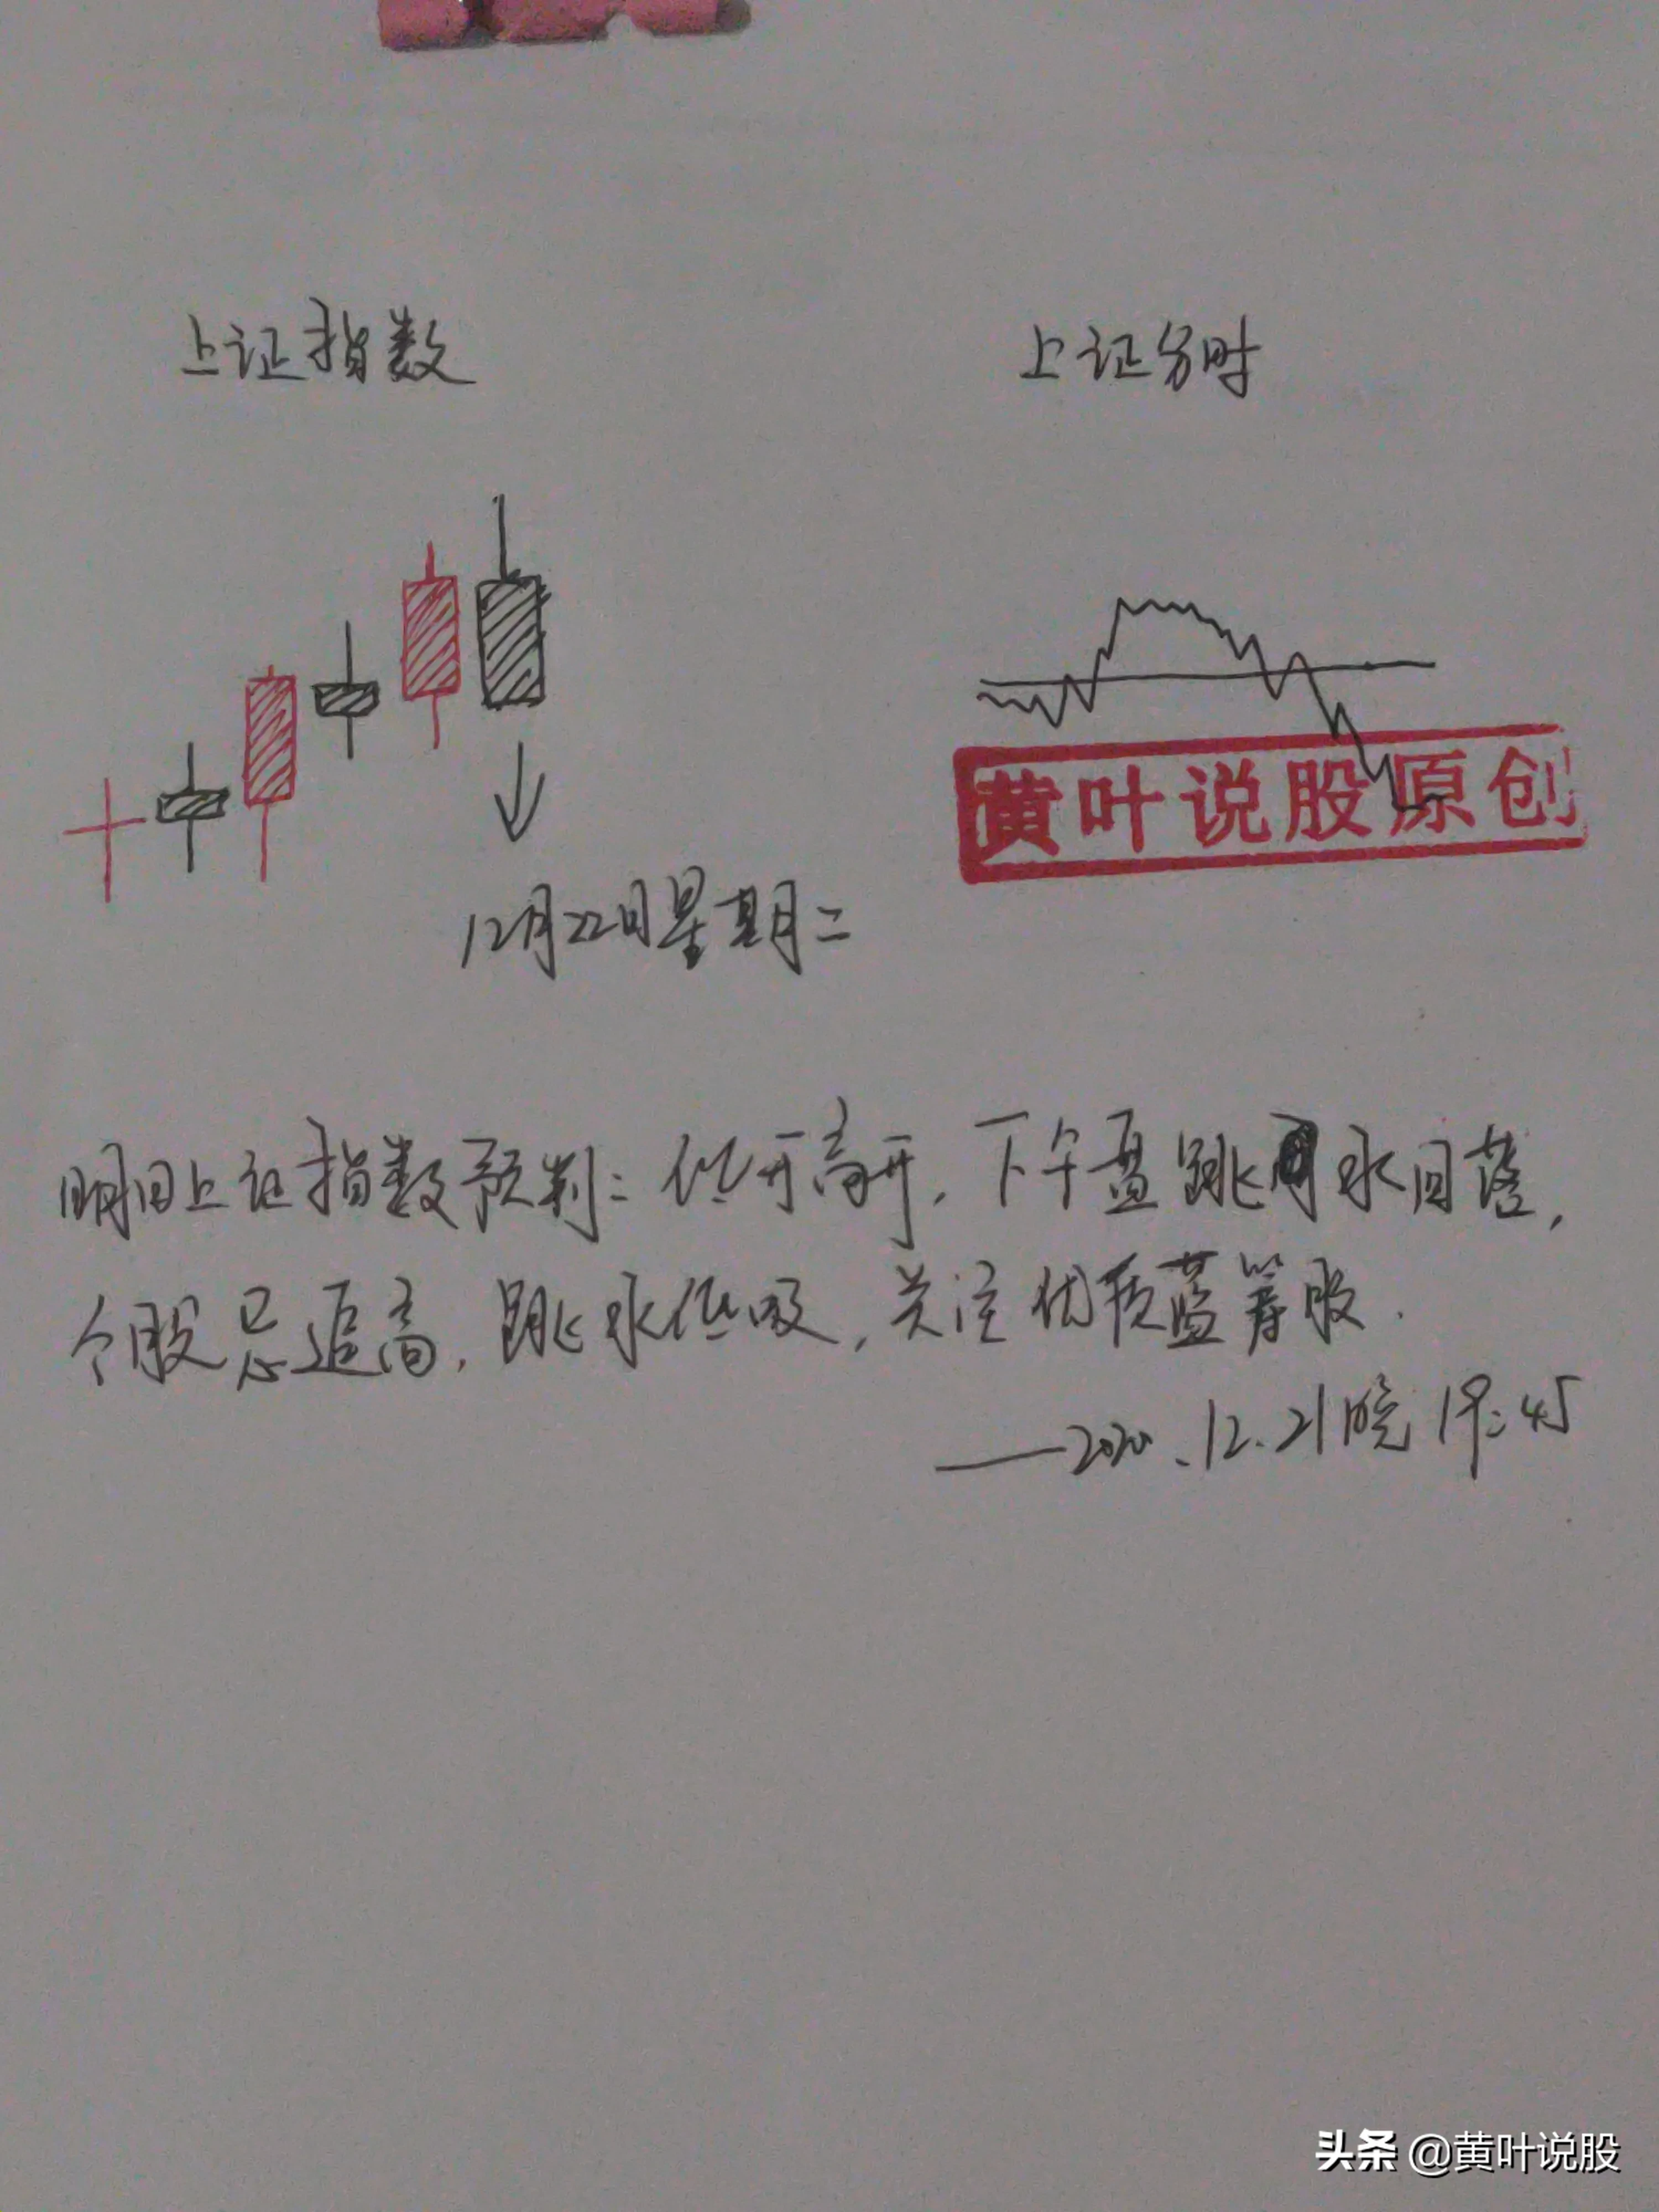 上证指数
上证分时
黄叶说股原创
12月22日星期二
明日上证指数预判：低开高开，下午盘跳水回落，
个股忌追高，跳水低吸，关注优质蓝筹股．
——2020.12.21晚19:45
头条 @黄叶说股